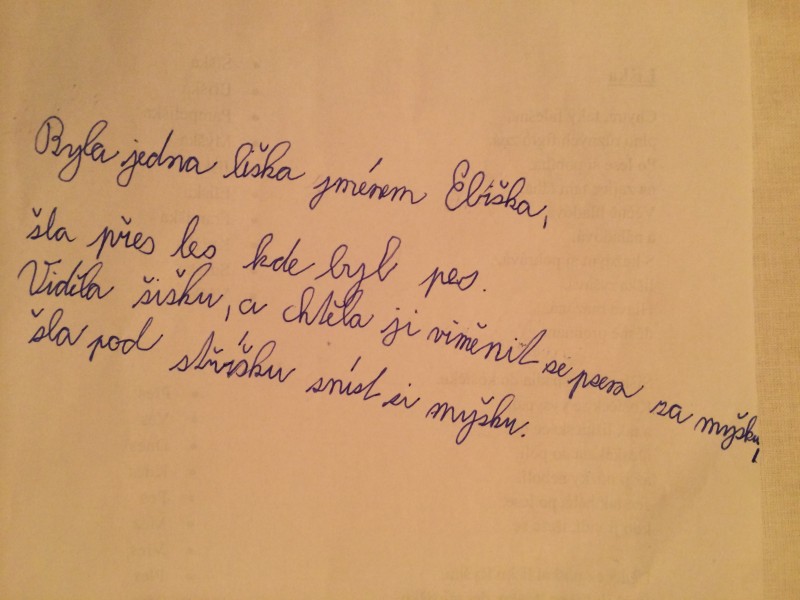 Byla jedna liška jménem Eliška,
šla přes les kde byl pes.
Viděla šišku, a chtěla ji viměnit se psem za myšku,
šla pod stříšku sníst si myšku.